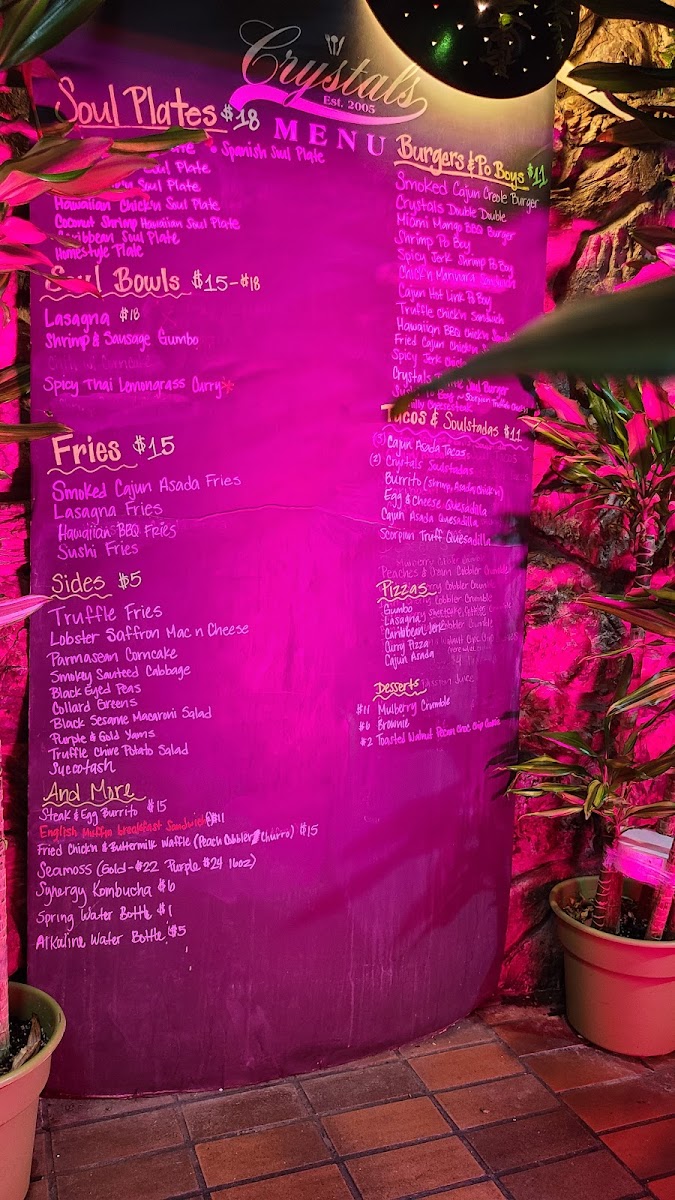 Crystal's
Est. 2005
MENU
Soul Plates $18
Spanish Soul Plate
Soul Plate
Soul Plate
Hawaiian Chick'n Soul Plate
Coconut Shrimp Hawaiian Soul Plate
Soul Plate
Homestyle Plate
Soul Bowls $15-$18
Lasagna $18
Shrimp & Sausage Gumbo
Spicy Thai Lemongrass Curry*
Fries $15
Smoked Cajun Asada Fries
Lasagna Fries
Hawaiian BBQ Fries
Sushi Fries
Sides $5
Truffle Fries
Lobster Saffron Mac n Cheese
Parmasean Corncake
Smokey Sauteed Cabbage
Black Eyed Peas
Collard Greens
Black Sesame Macaroni Salad
Purple & Gold Yams
Truffle Chive Potato Salad
Sucotash
And More
Steak & Egg Burrito $15
English Muffin breakfast Sandwich $11
Fried Chick'n & Buttermilk Waffle (Peach Cobbler/Churro) $15
Seamoss (Gold-$22 Purple $24 16oz)
Synergy Kombucha $6
Spring Water Bottle $1
Alkaline Water Bottle $5
Burgers & Po Boys $11
Smoked Cajun Creole Burger
Crystals Double Double
Miami Mango BBQ Burger
Shrimp Po Boy
Spicy Jerk Shrimp Po Boy
Chick'n Marinara Sandwich
Cajun Hot Link Po Boy
Truffle Chick'n Sandwich
Hawaiian BBQ Chick'n
Fried Cajun Chick'n
Spicy Jerk
Crystals Soul Burger
Po Boy ~ Scorpion Truffle
Cheesesteak
Tacos & Soulstadas $11
(3) Cajun Asada Tacos
(2) Crystals Soulstadas
Burrito (shrimp, Asada, Chick'n)
Egg & Cheese Quesadilla
Cajun Asada Quesadilla
Scorpion Truff Quesadilla
Peaches & Cream Cobbler Crumble
Pizzas
Gumbo
Lasagna
Caribbean Jerk
Curry Pizza
Cajun Asada
Desserts
$11 Mulberry Crumble
$6 Brownie
$2 Toasted Walnut Pecan Choc Chip Cookie